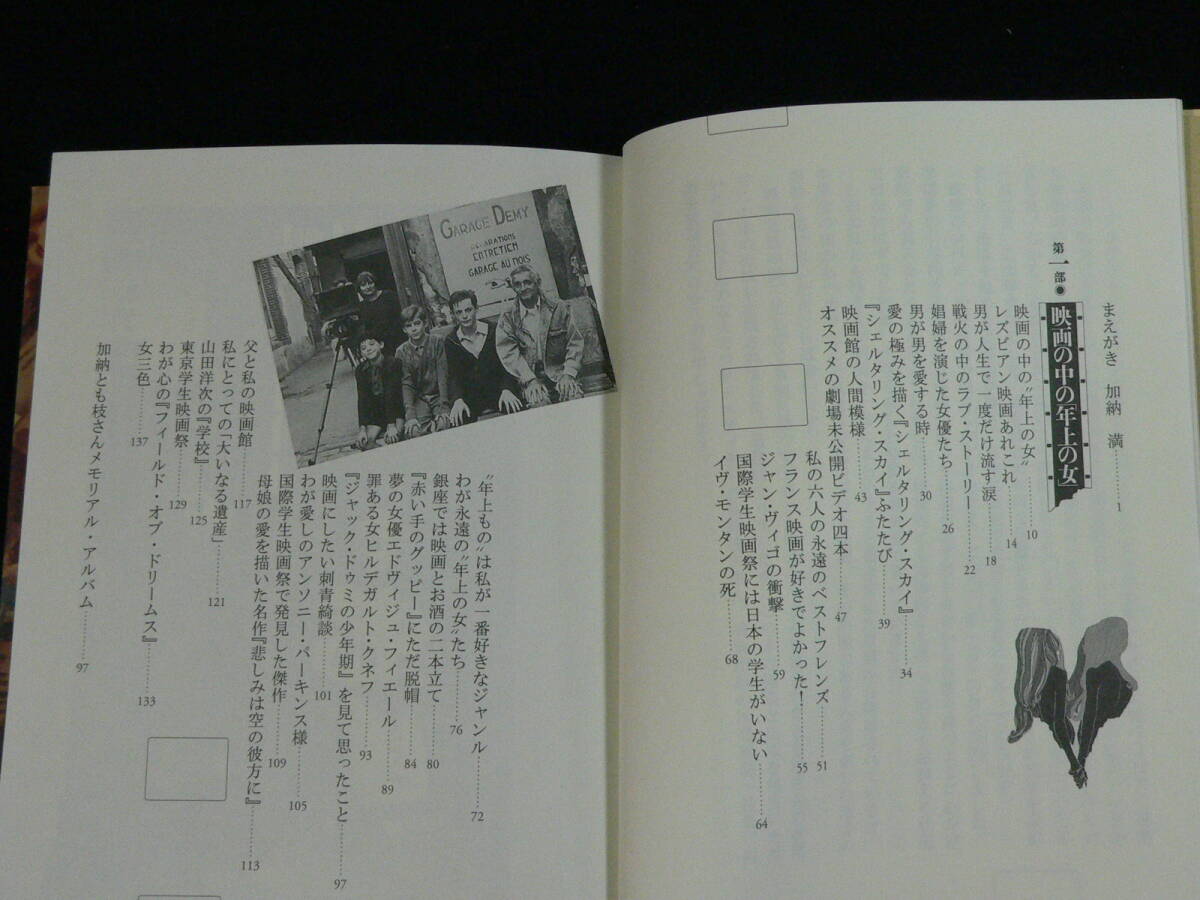 まえがき 加納 満……1
第一部●
映画の中の年上の女
映画の中の〝年上の女〟……10
レズビアン映画あれこれ……14
男が人生で一度だけ流す涙……18
戦火の中のラブ・ストーリー……22
娼婦を演じた女優たち……26
男が男を愛する時……30
愛の極みを描く『シェルタリング・スカイ』……34
『シェルタリング・スカイ』ふたたび……39
映画館の人間模様……43
オススメの劇場未公開ビデオ四本……47
私の六人の永遠のベストフレンズ……51
フランス映画が好きでよかった!……55
ジャン・ヴィゴの衝撃……59
国際学生映画祭には日本の学生がいない……64
イヴ・モンタンの死……68
GARAGE DEMY
RÉPARATIONS
ENTRETIEN
GARAGE AU MOIS
〝年上もの〟は私が一番好きなジャンル……72
わが永遠の〝年上の女〟たち……76
銀座では映画とお酒の二本立て……80
『赤い手のグッピー』にただ脱帽……84
夢の女優エドヴィジュ・フィエール……89
罪ある女ヒルデガルト・クネフ……93
『ジャック・ドゥミの少年期』を見て思ったこと……97
映画にしたい刺青綺談……101
わが愛しのアンソニー・パーキンス様……105
国際学生映画祭で発見した傑作……109
母娘の愛を描いた名作『悲しみは空の彼方に』……113
父と私の映画館……117
私にとっての「大いなる遺産」……121
山田洋次の『学校』……125
東京学生映画祭……129
わが心の『フィールド・オブ・ドリームス』……133
女三色……137
加納とも枝さんメモリアル・アルバム……97